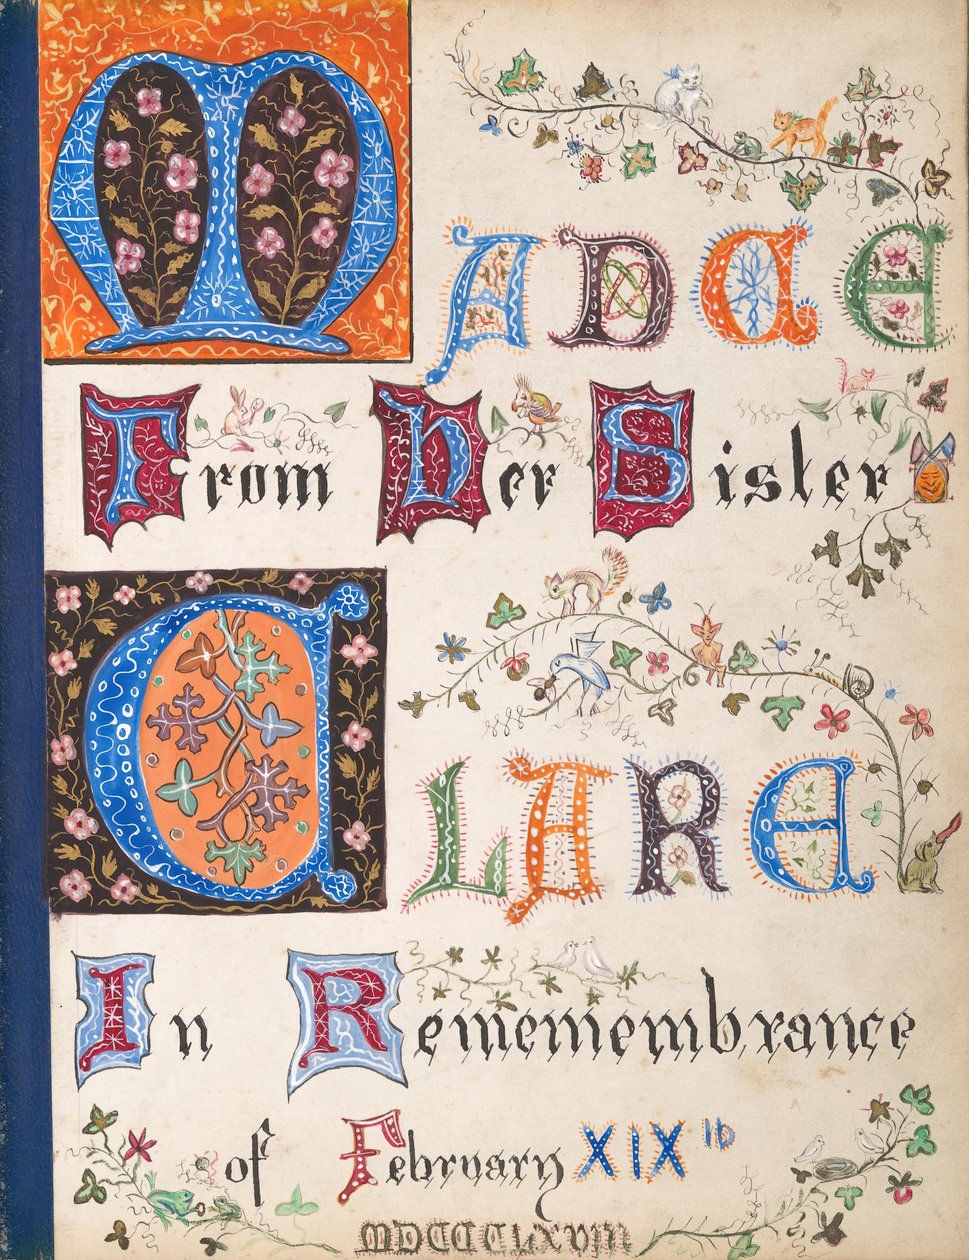 MADGE
From Her Sister
CLARE
In Remembrance
of February XIX th
MDCCCLXVIII